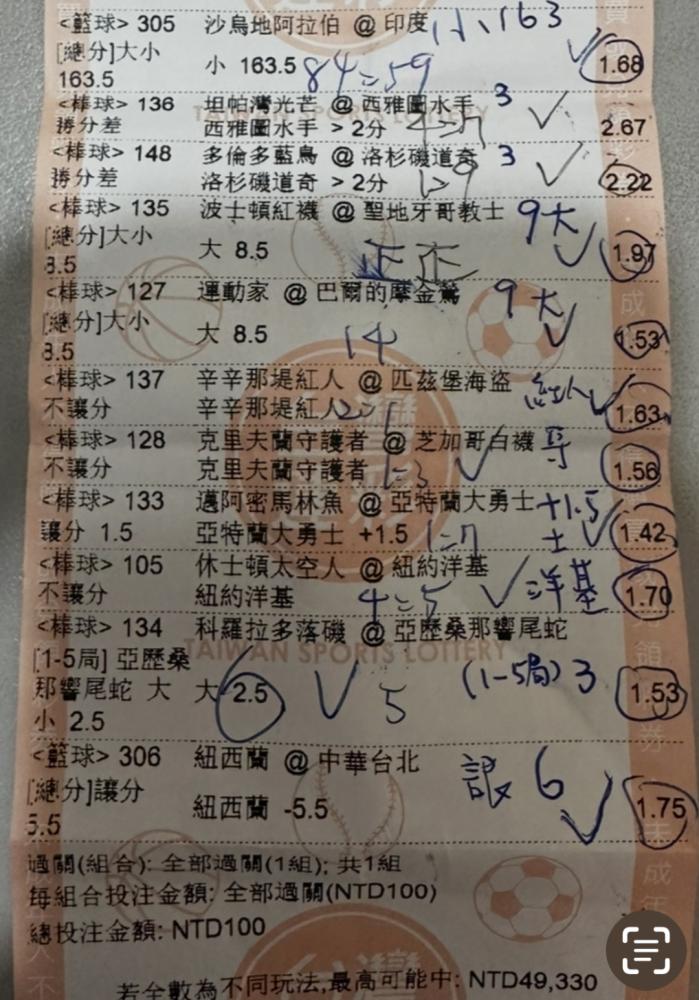 <籃球> 305 沙烏地阿拉伯 @ 印度 小163
[總分]大小 小 163.5 84=59 1.68
163.5
<棒球> 136 坦帕灣光芒 @ 西雅圖水手 3
勝分差 西雅圖水手 > 2分 4=7 2.67
<棒球> 148 多倫多藍鳥 @ 洛杉磯道奇 3
勝分差 洛杉磯道奇 > 2分 1>9 2.22
<棒球> 135 波士頓紅襪 @ 聖地牙哥教士 9大
[總分]大小 大 8.5 正正 1.97
8.5
<棒球> 127 運動家 @ 巴爾的摩金鶯 9大
[總分]大小 大 8.5 14 1.53
8.5
<棒球> 137 辛辛那堤紅人 @ 匹茲堡海盜 紅人
不讓分 辛辛那堤紅人 2=1 1.63
<棒球> 128 克里夫蘭守護者 @ 芝加哥白襪
不讓分 克里夫蘭守護者 1=3 1.56
<棒球> 133 邁阿密馬林魚 @ 亞特蘭大勇士 +1.5
讓分 1.5 亞特蘭大勇士 +1.5 1=7 士 1.42
<棒球> 105 休士頓太空人 @ 紐約洋基 洋基
不讓分 紐約洋基 4=5 1.70
<棒球> 134 科羅拉多落磯 @ 亞歷桑那響尾蛇
[1-5局] 亞歷桑
那響尾蛇 大 大 2.5 6 5 (1-5局) 3 1.53
小 2.5
<籃球> 306 紐西蘭 @ 中華台北
[總分]讓分 紐西蘭 -5.5 讓 6 1.75
5.5
過關(組合): 全部過關(1組); 共1組
每組合投注金額: 全部過關(NTD100)
總投注金額: NTD100
若全數為不同玩法,最高可能中: NTD49,330
TAIWAN SPORTS LOTTERY
TAIWAN SPORTS LOTTERY